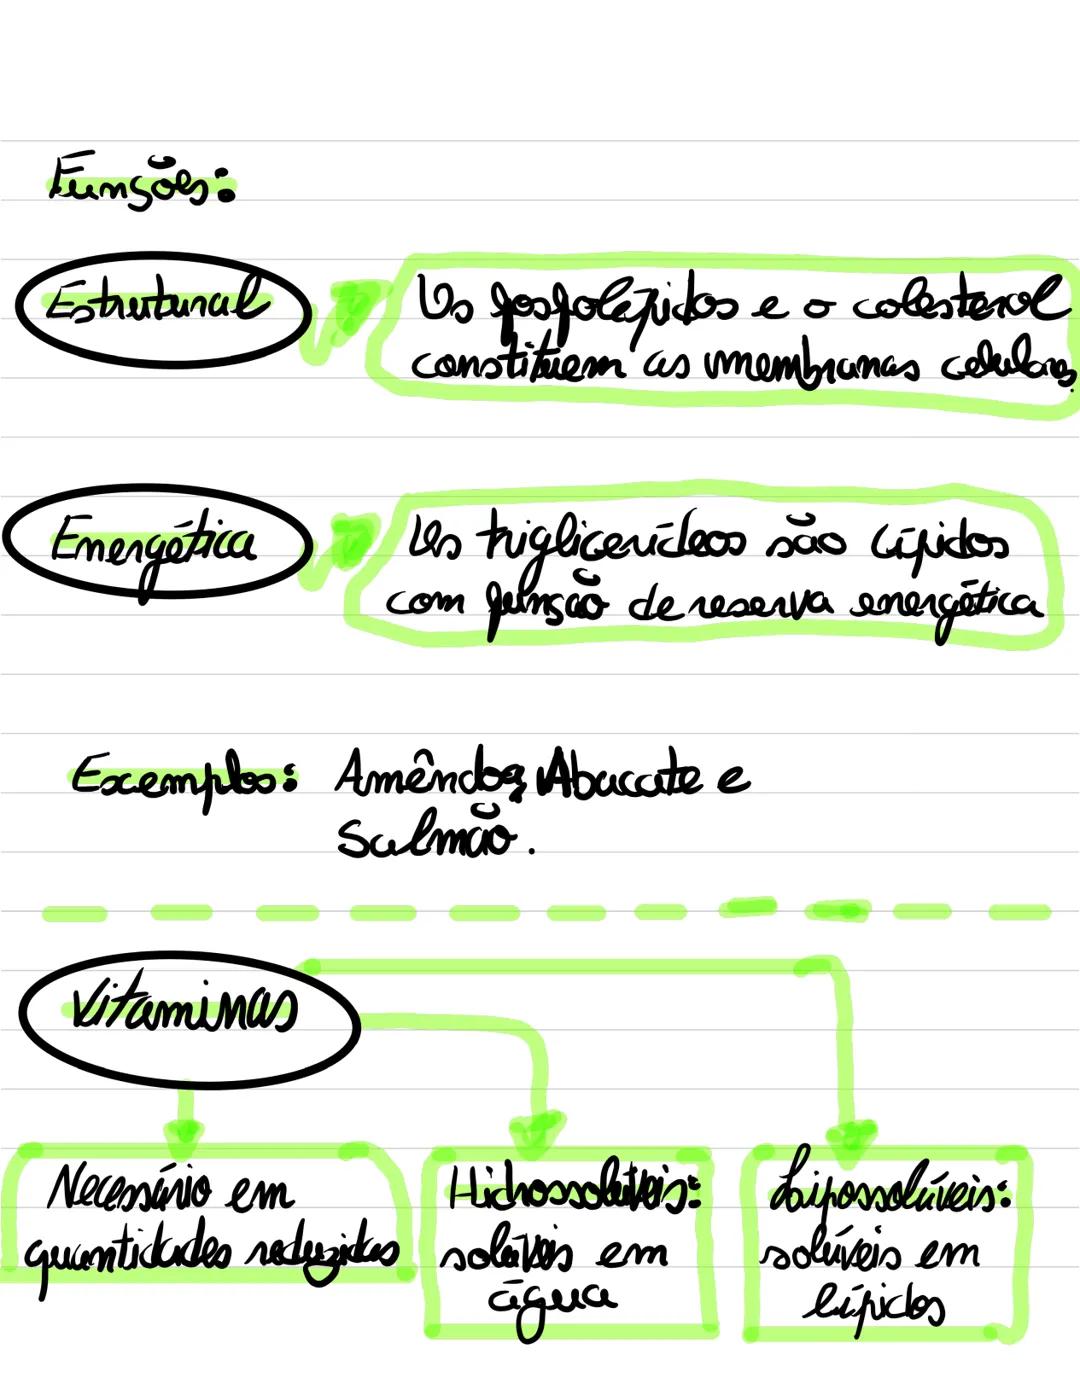 Funções:
Estrutural
Os fosfolípidos e o colesterol
constituem as membranas celulares
Energética
Os triglicerídeos são lípidos
com função de reserva energética
Exemplos: Amêndoa, Abacate e
Salmão.
Vitaminas
Necessário em
quantidades reduzidas
Hidrossolúveis:
solúveis em
água
Lipossolúveis:
solúveis em
lípidos